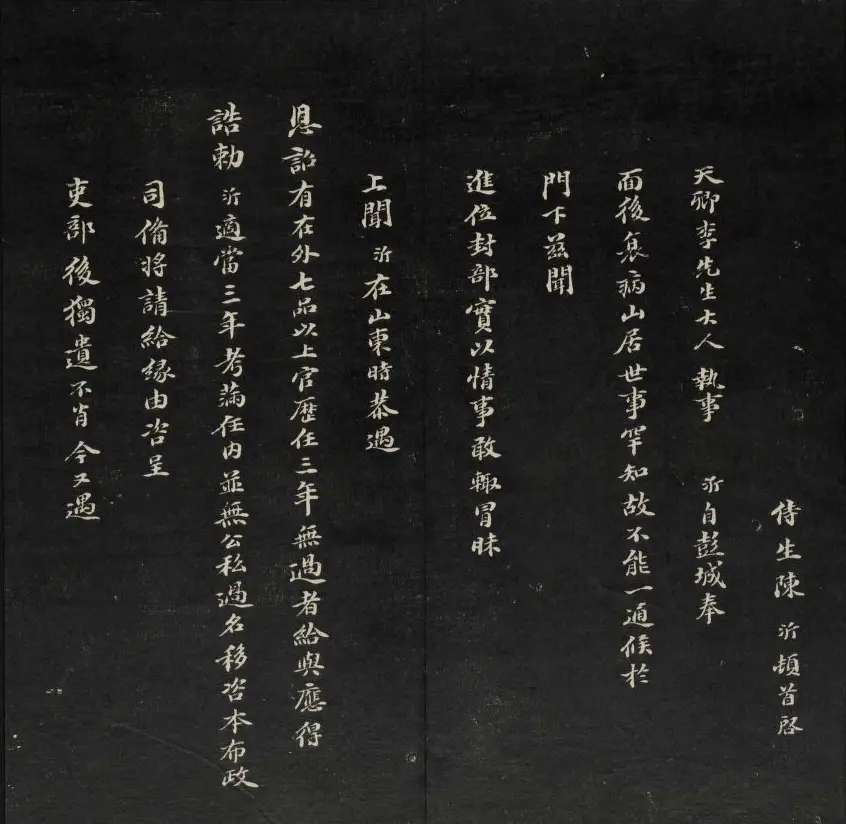 侍生陳沂頓首啓
天卿李先生大人執事 沂自彭城奉
面後衰病山居世事罕知故不能一通候於
門下茲聞
進位封部實以情事敢輙冒昧
上聞沂在山東時恭遇
恩詔有在外七品以上官歷任三年無過者給與應得
誥勅沂適當三年考滿在內並無公私過名移咨本布政
司備將請給緣由咨呈
吏部後獨遺不肖今又遇